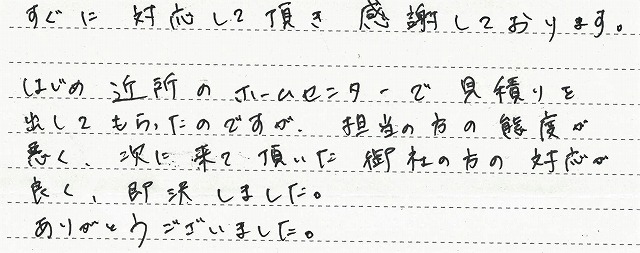 すぐに 対応して頂き 感謝しております。
はじめ 近所のホームセンターで 見積りを
出してもらったのですが、担当の方の態度が
悪く、次に来て頂いた 御社の方の対応が
良く、即決しました。
ありがとうございました。